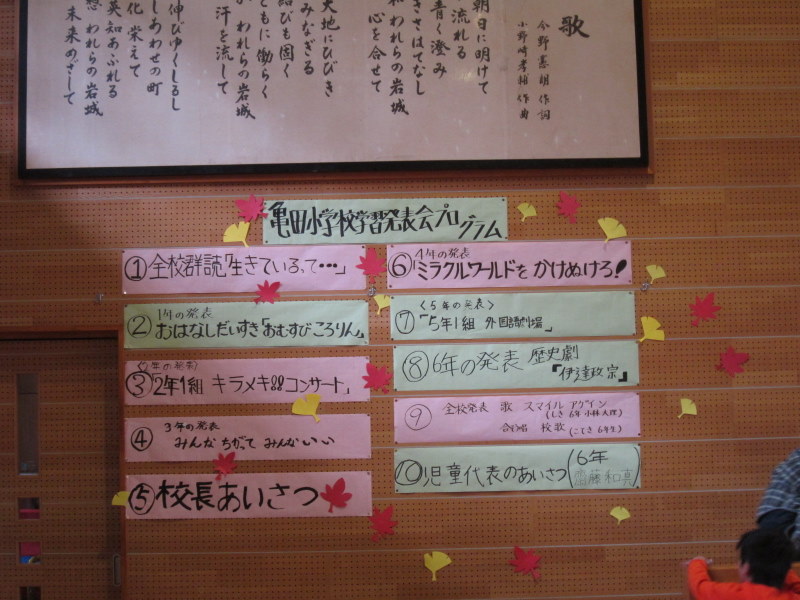 歌
今野憲朗 作詞
小野崎孝輔 作曲
朝日に明けて
流れる
青く澄み
われらの岩城
心を合せて
大地にひびき
みなぎる
結びも固く
ともに働らく
われらの岩城
汗を流して
伸びゆくしるし
しあわせの町
化 栄えて
英知あふれる
想 われらの岩城
未来めざして
亀田小学校学習発表会プログラム
①全校群読「生きているって・・・」
1年の発表
②おはなしだいすき「おむすびころりん」
2年の発表
③「2年1組 キラメキ コンサート」
3年の発表
④ みんなちがって みんないい
⑤校長あいさつ
4年の発表
⑥「ミラクルワールドをかけぬけろ!
〈5年の発表〉
⑦「5年1組 外国語劇場」
⑧6年の発表 歴史劇
「伊達政宗」
⑨ 全校発表 歌 スマイル アゲイン
(しき 6年 小林大理)
合唱 校歌 (ことき 6年生)
⑩児童代表のあいさつ (6年
齋藤和真)